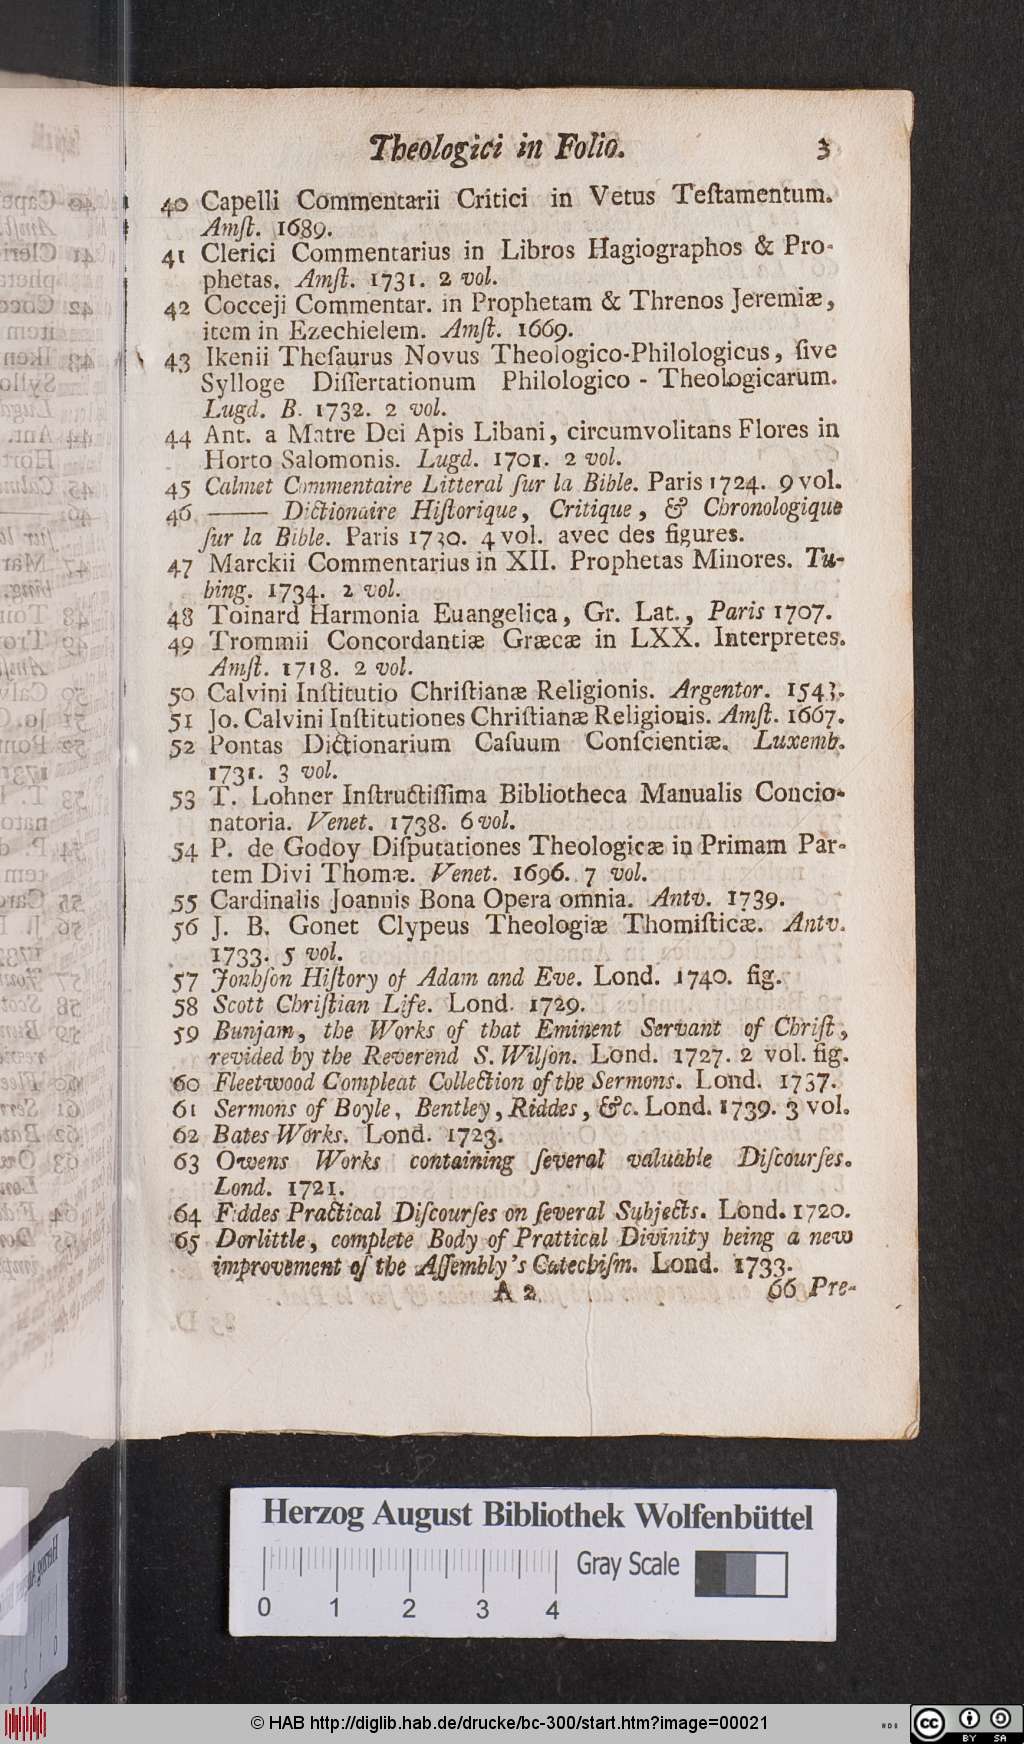 Theologici in Folio. 3
40 Capelli Commentarii Critici in Vetus Teſtamentum.
Amſt. 1689.
41 Clerici Commentarius in Libros Hagiographos & Pro-
phetas. Amſt. 1731. 2 vol.
42 Cocceji Commentar. in Prophetam & Threnos Jeremiæ,
item in Ezechielem. Amſt. 1669.
43 Ikenii Theſaurus Novus Theologico-Philologicus, ſive
Sylloge Diſſertationum Philologico - Theologicarum.
Lugd. B. 1732. 2 vol.
44 Ant. a Matre Dei Apis Libani, circumvolitans Flores in
Horto Salomonis. Lugd. 1701. 2 vol.
45 Calmet Commentaire Litteral ſur la Bible. Paris 1724. 9 vol.
46 —— Dictionaire Hiſtorique, Critique, & Chronologique
ſur la Bible. Paris 1730. 4 vol. avec des figures.
47 Marckii Commentarius in XII. Prophetas Minores. Tu-
bing. 1734. 2 vol.
48 Toinard Harmonia Euangelica, Gr. Lat., Paris 1707.
49 Trommii Concordantiæ Græcæ in LXX. Interpretes.
Amſt. 1718. 2 vol.
50 Calvini Inſtitutio Chriſtianæ Religionis. Argentor. 1543.
51 Jo. Calvini Inſtitutiones Chriſtianæ Religionis. Amſt. 1667.
52 Pontas Dictionarium Caſuum Conſcientiæ. Luxemb.
1731. 3 vol.
53 T. Lohner Inſtructiſſima Bibliotheca Manualis Concio-
natoria. Venet. 1738. 6 vol.
54 P. de Godoy Diſputationes Theologicæ in Primam Par-
tem Divi Thomæ. Venet. 1696. 7 vol.
55 Cardinalis Joannis Bona Opera omnia. Antv. 1739.
56 J. B. Gonet Clypeus Theologiæ Thomiſticæ. Antv.
1733. 5 vol.
57 Jonhſon Hiſtory of Adam and Eve. Lond. 1740. fig.
58 Scott Chriſtian Life. Lond. 1729.
59 Bunjam, the Works of that Eminent Servant of Chriſt,
revided by the Reverend S. Wilſon. Lond. 1727. 2 vol. fig.
60 Fleetwood Compleat Collection of the Sermons. Lond. 1737.
61 Sermons of Boyle, Bentley, Riddes, &c. Lond. 1739. 3 vol.
62 Bates Works. Lond. 1723.
63 Owens Works containing ſeveral valuable Diſcourſes.
Lond. 1721.
64 Fiddes Practical Diſcourſes on ſeveral Subjects. Lond. 1720.
65 Dorlittle, complete Body of Prattical Divinity being a new
improvement of the Aſſembly's Catechiſm. Lond. 1733.
A 2 66 Pre-
Herzog August Bibliothek Wolfenbüttel
Gray Scale
0 1 2 3 4
© HAB http://diglib.hab.de/drucke/bc-300/start.htm?image=00021
cc BY SA